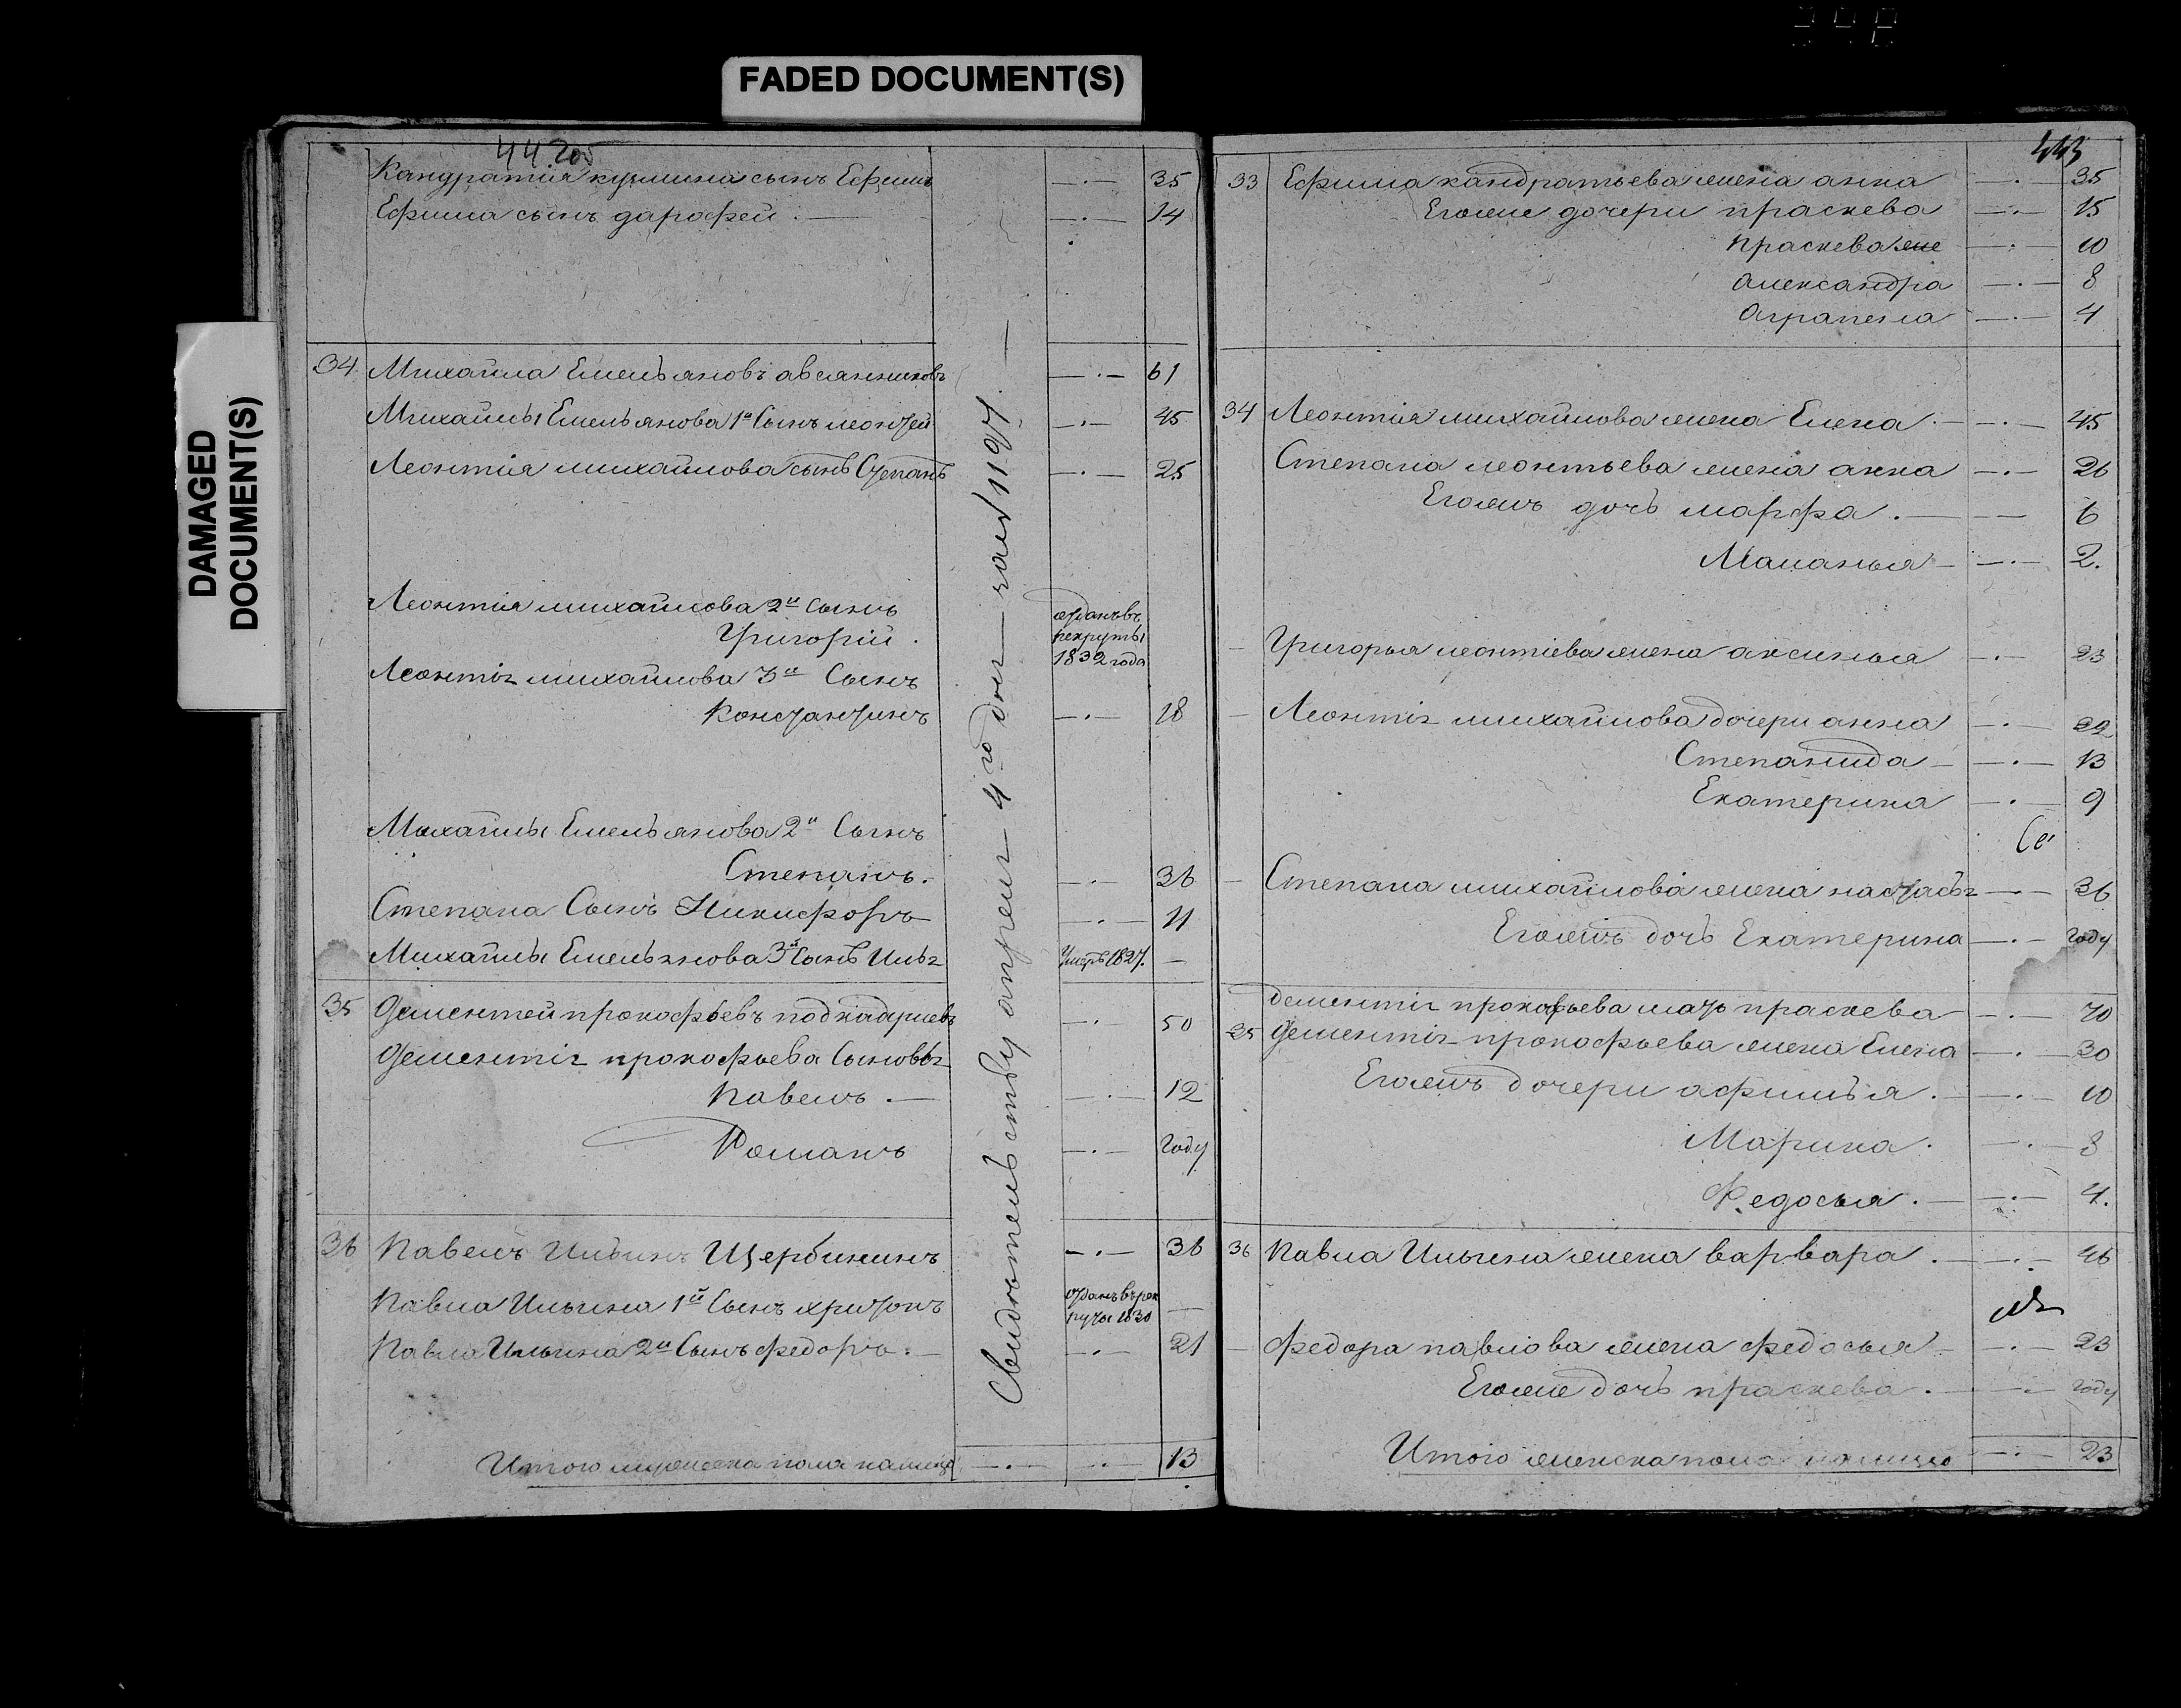 FADED DOCUMENT(S)
DAMAGED
DOCUMENT(S)
44 205
Кандратия кузмина сынъ Ефимъ —·— 35
Ефима сынъ дарофей. —·— 14
34 Михаила Емельяновъ авсянниковъ —·— 61
Михайлы Емельянова 1й Сынъ леонтей —·— 45
Леонтия михайлова сынъ Степанъ —·— 25
Леонтия михайлова 2й сынъ
Григорий. отданъ въ рекруты 1832 года
Леонтія михайлова 3й Сынъ
Константинъ —·— 18
Михайлы Емельянова 2й Сынъ
Степанъ. —·— 36
Степана Сынъ Никифоръ —·— 11
Михайлы Емельянова 3й Сынъ Илья Умеръ 1827. —
35 Дементей прокофьевъ —·— 50
Дементія прокофьева Сыновья
Павелъ. —·— 12
Романъ —·— году
36 Павелъ Ильинъ Щербининъ —·— 36
Павла Ильина 1й Сынъ отданъ в рекруты 1830 —
Павла Ильина 2й Сынъ федоръ. —·— 21
Итого мужеска пола налицо —·— 13
Свидетельству апреля 4го дня
443
33 Ефима кандратьева жена анна —·— 35
Егоже дочери праскева —·— 15
праскева же —·— 10
александра —·— 8
аграпена —·— 4
34 Леонтия михайлова жена Елена. —·— 45
Степана леонтьева жена анна —·— 26
Егожъ дочь марфа. — 6
Маланья —·— 2.
— Григорья леонтіева жена аксинья —·— 23
— Леонтія михайлова дочери анна —·— 22
Степанида —·— 13
Екатерина —·— 9
— Степана михайлова жена настасья —·— 36
Егожъ дочь Екатерина —·— году
дементія прокофьева мать праскева —·— 70
35 Дементія прокофьева жена Елена —·— 30
Егожъ дочери афимья. —·— 10
Марина. —·— 8
Федосья. —·— 4.
36 Павла Ильина жена варвара. —·— 46
— федора павлова жена федосья —·— 23
Егоже дочь праскева. —·— году
Итого женска пола налицо —·— 23